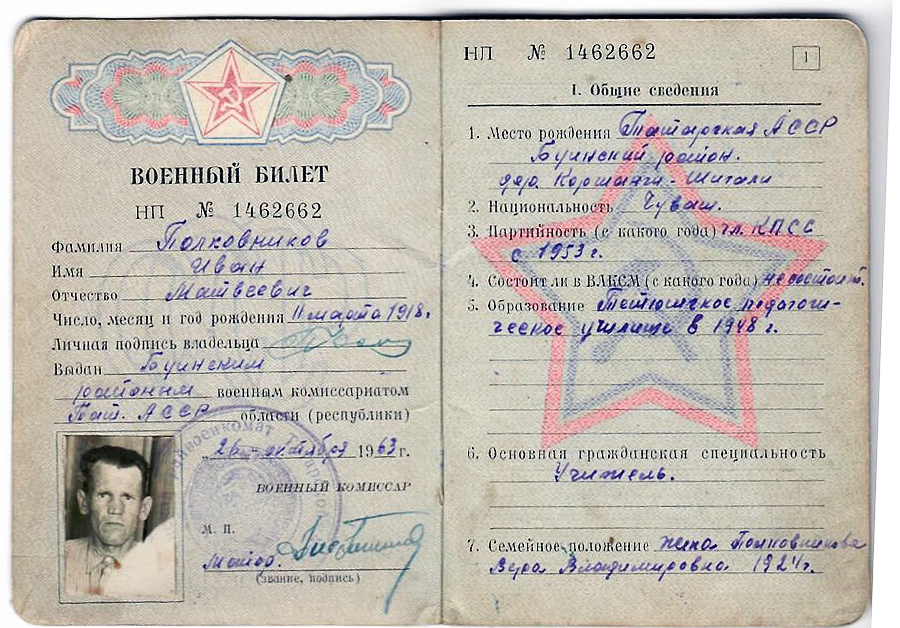 ВОЕННЫЙ БИЛЕТ
НП № 1462662
Фамилия Полковников
Имя Иван
Отчество Матвеевич
Число, месяц и год рождения 11 марта 1918.
Личная подпись владельца
Выдан Буинским
районым военным комиссариатом
Тат. АССР области (республики)
26 октября 1963 г.
ВОЕННЫЙ КОМИССАР
М. П.
Майор
(звание, подпись)
НП № 1462662
1
I. Общие сведения
1. Место рождения Татарская АССР
Буинский район.
дер. Шигали
2. Национальность Чуваш.
3. Партийность (с какого года) чл. КПСС
с 1953 г.
4. Состоит ли в ВЛКСМ (с какого года) не состоит.
5. Образование Тетюшское педагоги-
ческое училище в 1948 г.
6. Основная гражданская специальность
Учитель.
7. Семейное положение жена Полковникова
Вера Владимировна 1924 г.